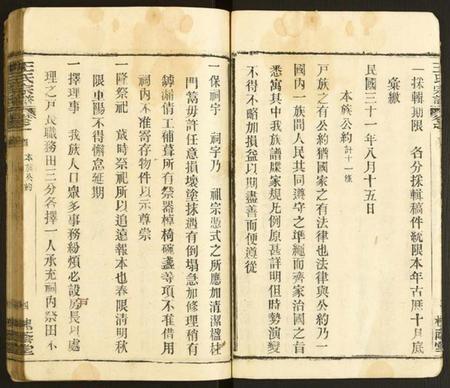 一採輯期限 各分採輯稿件統限本年古曆十月底
彙繳
民國三十一年八月十五日
本族公約計十一條
戶族之有公約猶國家之有法律也法律與公約乃一
國內一族間人民共同遵守之準繩而齊家治國之旨
悉寓其中我族譜牒家規凡例原甚詳明但時勢演變
不得不略加損益以期盡善而便遵從
一保祠宇 祠宇乃 祖宗憑式之所應加清潔楹柱
門窗毋許任意損壞塗抹遇有倒塌急加修理稍有
罅漏倩工補葺所有祭器棹椅碗盞等項不准借用
祠內不准寄存物件以示尊崇
一隆祭祀 歲時祭祀所以追遠報本也春限清明秋
限重陽不得懈怠延期
一擇理事 我族人口眾多事務紛煩必設房長以處
理之戶長職務田三分各擇一人承充祠內祭田不
王氏宗譜
本族公約
四